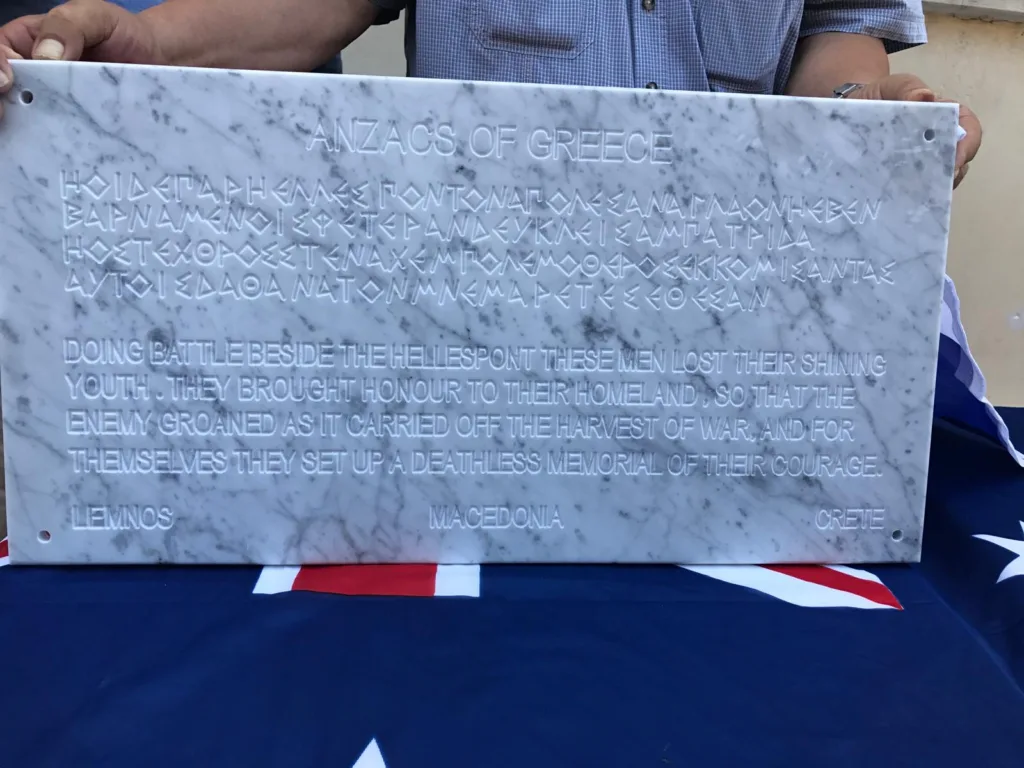 ANZACS OF GREECE
ΗΟΙΔΕΓΑΡΗΕΛΛΕΣΠΟΝΤΟΝΑΠΟΛΕΣΑΝΑΓΛΑΟΝΗΕΒΕΝ
ΒΑΡΝΑΜΕΝΟΙΣΦΕΤΕΡΑΝΔΕΥΚΛΕΙΣΑΜΠΑΤΡΙΔΑ
ΗΟΣΤΕΧΘΡΟΣΣΤΕΝΑΧΕΜΠΟΛΕΜΟΘΕΡΟΣΕΚΚΟΜΙΣΑΝΤΑΣ
ΑΥΤΟΙΣΔΑΘΑΝΑΤΟΝΜΝΕΜΑΡΕΤΕΣΕΘΕΣΑΝ
DOING BATTLE BESIDE THE HELLESPONT THESE MEN LOST THEIR SHINING
YOUTH . THEY BROUGHT HONOUR TO THEIR HOMELAND , SO THAT THE
ENEMY GROANED AS IT CARRIED OFF THE HARVEST OF WAR, AND FOR
THEMSELVES THEY SET UP A DEATHLESS MEMORIAL OF THEIR COURAGE.
LEMNOS MACEDONIA CRETE